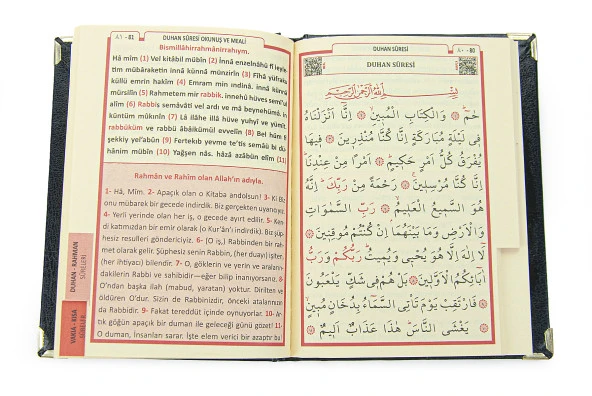 ٨١ - 81 DUHAN SÛRESİ OKUNUŞ VE MEALİ
Bismillâhirrahmânirrahıym.
Hâ mîm (1) Vel kitâbil mübîn (2) İnnâ enzelnâhü fî leyle-
tim mübâraketin innâ künnâ münzirîn (3) Fîhâ yüfraku
küllü emrin hakîm (4) Emram min ındinâ. innâ künnâ
mürsilîn (5) Rahmetem mir rabbik. innehû hüves semî'ul
alîm (6) Rabbis semâvâti vel ardı ve mâ beynehümâ. in
küntüm mûkınîn (7) Lâ ilâhe illâ hüve yuhyî ve yümît.
rabbüküm ve rabbü âbâikümül evvelîn (8) Bel hüm fî
şekkiy yel'abûn (9) Fertekıb yevme te'tis semâü bi dü-
hânim mübîn (10) Yağşen nâs. hâzâ azâbün elîm (11)
Rahmân ve Rahîm olan Allah'ın adıyla.
1- Hâ, Mîm. 2- Apaçık olan o Kitaba andolsun! 3- Ki Biz
onu mübarek bir gecede indirdik. Biz gerçekten uyarıcıyız.
4- Yerli yerinde olan her iş, o gecede ayırt edilir. 5- Ken-
di katımızdan bir emir olarak (o Kur'ân'ı indirdik). Biz şüp-
hesiz resulleri göndericiyiz. 6- (O iş,) Rabbinden bir rah-
met olarak gelir. Şüphesiz senin Rabbin, (her duayı) işiten,
(her ihtiyacı) bilendir. 7- O, göklerin ve yerin ve araların-
dakilerin Rabbi ve sahibidir—eğer bilip inanıyorsanız. 8-
O'ndan başka ilah (mabud, yaratan) yoktur. Diriltен ve
öldüren O'dur. Sizin de Rabbinizdir, önceki atalarınızın
da Rabbidir. 9- Fakat tereddüt içinde oynuyorlar. 10- Ar-
tık göğün apaçık bir duman ile geleceği günü gözet! 11-
O duman, İnsanları sarar. İşte elem verici bir azaptır bu.
DUHAN - RAHMAN
SÛRELERİ
VAKIA - KISA
SÛRELER
DUHAN SÛRESİ ٨٠ - 80
DUHAN SÛRESİ
بِسْمِ اللّٰهِ الرَّحْمٰنِ الرَّحِيمِ
حٰمٓ ۞ وَالْكِتَابِ الْمُبِينِ ۞ اِنَّٓا اَنْزَلْنَاهُ
فِى لَيْلَةٍ مُبَارَكَةٍ اِنَّا كُنَّا مُنْذِرِينَ ۞ فِيهَا
يُفْرَقُ كُلُّ اَمْرٍ حَكِيمٍ ۞ اَمْرًا مِنْ عِنْدِنَا
اِنَّا كُنَّا مُرْسِلِينَ ۞ رَحْمَةً مِنْ رَبِّكَ اِنَّهُ
هُوَ السَّمِيعُ الْعَلِيمُ ۞ رَبِّ السَّمٰوَاتِ
وَالْاَرْضِ وَمَا بَيْنَهُمَا اِنْ كُنْتُمْ مُوقِنِينَ ۞
لَٓا اِلٰهَ اِلَّا هُوَ يُحْيِى وَيُمِيتُ رَبُّكُمْ وَرَبُّ
اٰبَٓائِكُمُ الْاَوَّلِينَ ۞ بَلْ هُمْ فِى شَكٍّ يَلْعَبُونَ
۞ فَارْتَقِبْ يَوْمَ تَأْتِى السَّمَٓاءُ بِدُخَانٍ مُبِينٍ
۞ يَغْشَى النَّاسَ هٰذَا عَذَابٌ اَلِيمٌ ۞